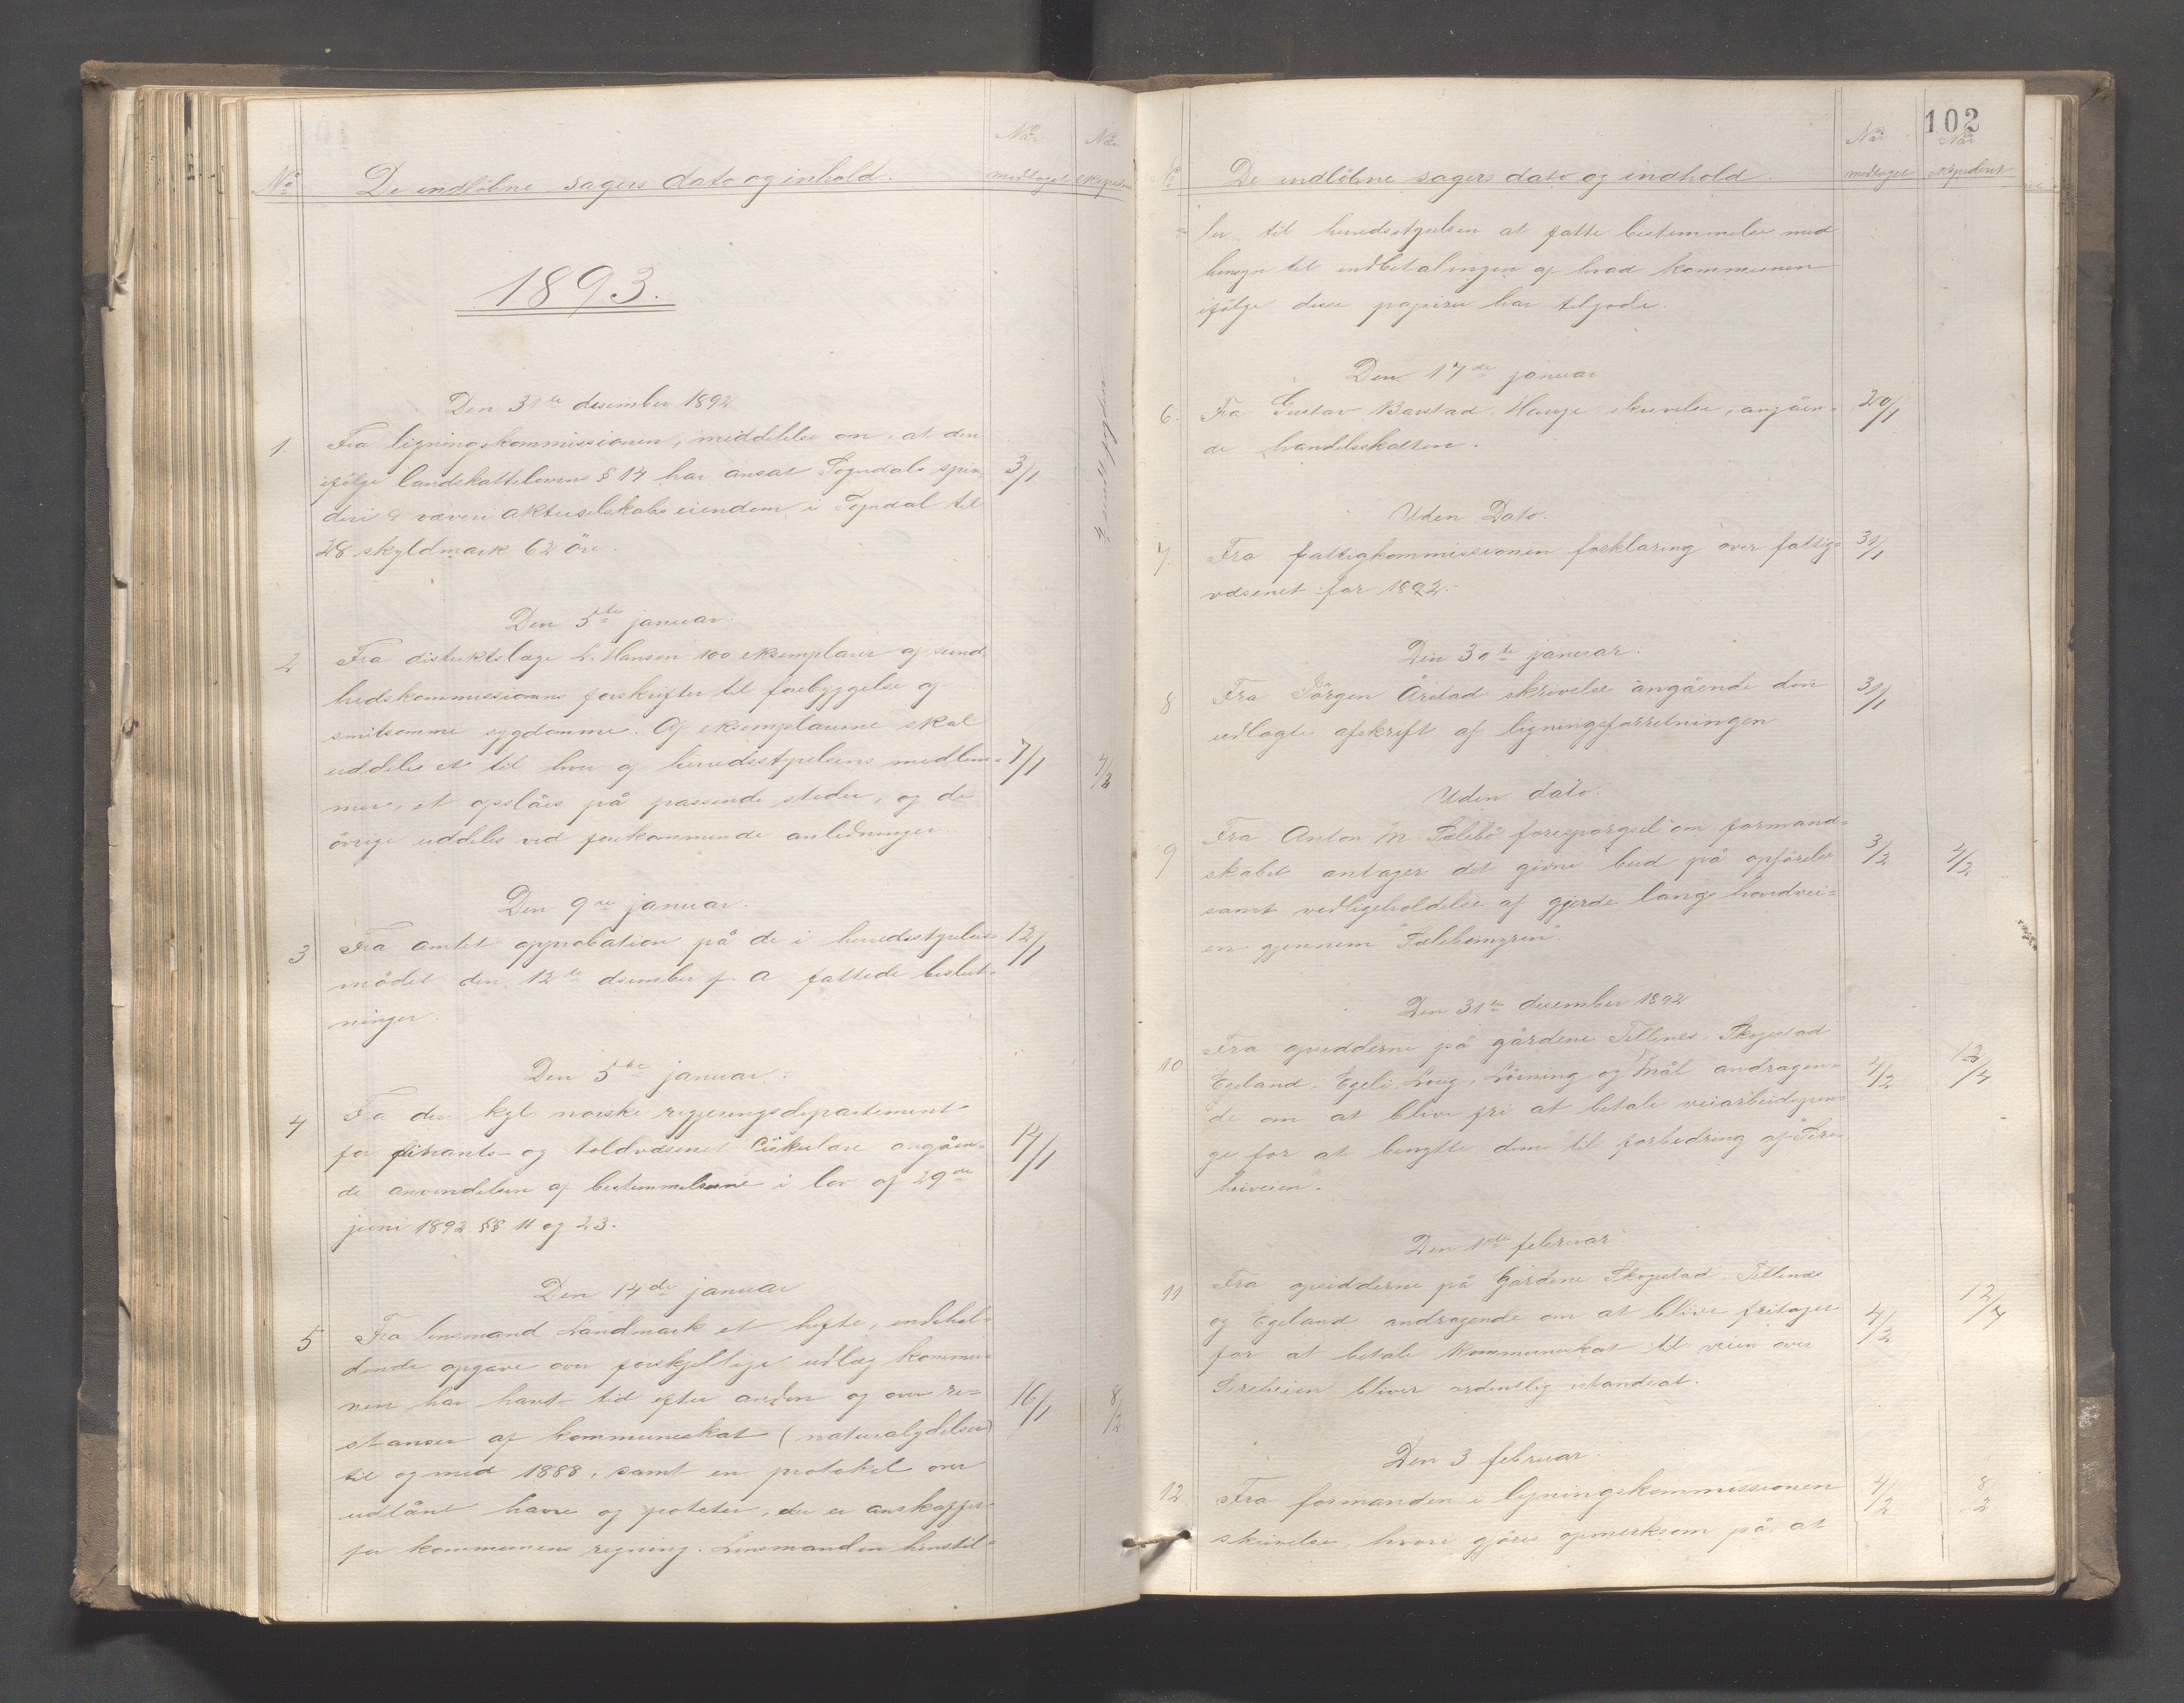 No
De indløbne sagers dato og inhold.
Når
modtaget
Når
1893.
Den 31te desember 1892
1. Fra ligningskommissionen, meddelelse om, at den
ifølge landskattelovens § 14 har ansat Sogndals spin-
deri & væveri aktieselskabs eiendom i Sogndal til
28 skyldmark 62 öre.
3/1
Den 5te januar.
2 Fra distriktslæge L. Hansen 100 eksemplarer af sund-
hedskommissionens forskrifter til forebyggelse af
smitsomme sygdomme. Af eksemplarerne skal
uddeles et til hver af herredsstyrelsens medlem-
mer, et opslåes på passende steder, og de
övrige uddeles ved forekommende anledninger.
7/1
4/2
Den 9de januar.
3 Fra amtet approbation på de i herredsstyrelses-
mödet den 12te desember f. a fattede beslut-
ninger.
12/1
Den 5te januar.
4 Fra den kgl norske regjeringsdepartement
for finants- og toldvæsenet Cirkulære angåen-
de anvendelsen af bestemmelserne i lov af 29de
juni 1892 §§ 11 og 23.
14/1
Den 14de januar
5 Fra lensmand Landmark et hefte, indehol-
dende opgave over forskjellige udlæg kommu-
nen har havt tid efter anden og over re-
stancer af kommuneskat (naturalydelser)
til og med 1888, samt en protokol over
udlånt havre og poteter, der er anskaffet
for kommunens regning. Lensmanden henstil-
16/1
8/2
102
No
De indløbne sagers dato og indhold
Når
modtaget
Når
ekspederet
ler til herredsstyrelsen at fatte bestemmelse med
hensyn til indbetalingen af hvad kommunen
ifölge disse papirer har tilgode.
Den 17de januar
6. Fra Gustav Barstad, Hauge skrivelse, angåen-
de handelsskatten.
20/1
Uden Dato.
7. Fra fattigkommissionen forklaring over fattig-
væsenet for 1892.
31/1
Den 30te januar.
8 Fra Jörgen Årstad skrivelse angående den
udlagte afskrift af ligningsforretningen
31/1
Uden dato.
9 Fra Anton M. Sælebö forespörgsel om formand-
skabet antager det givne bud på opförelse
samt vedligeholdelse af gjerde langs hovedvei-
en gjennem "Sælebömyren".
3/2
4/2
Den 31te desember 1892
10 Fra opsidderne på gårdene Tellenes, Skogestad
Egeland, Egeli, Loug, Löining og Mål andragen-
de om at blive fri at betale veiarbeidspen-
ge for at benytte dem til forbedring af "Sire-
heiveien".
4/2
12/4
Den 1ste februar
11 Fra opsidderne på Gårdene Skogestad, Tellenes
og Egeland andragende om at blive fritaget
for at betale kommuneskat til veien over
Sireheien bliver ordentlig istandsat.
4/2
12/4
Den 3 februar.
12 Fra formanden i ligningskommissionen
skrivelse, hvori gjöres opmerksom på at
4/2
8/2